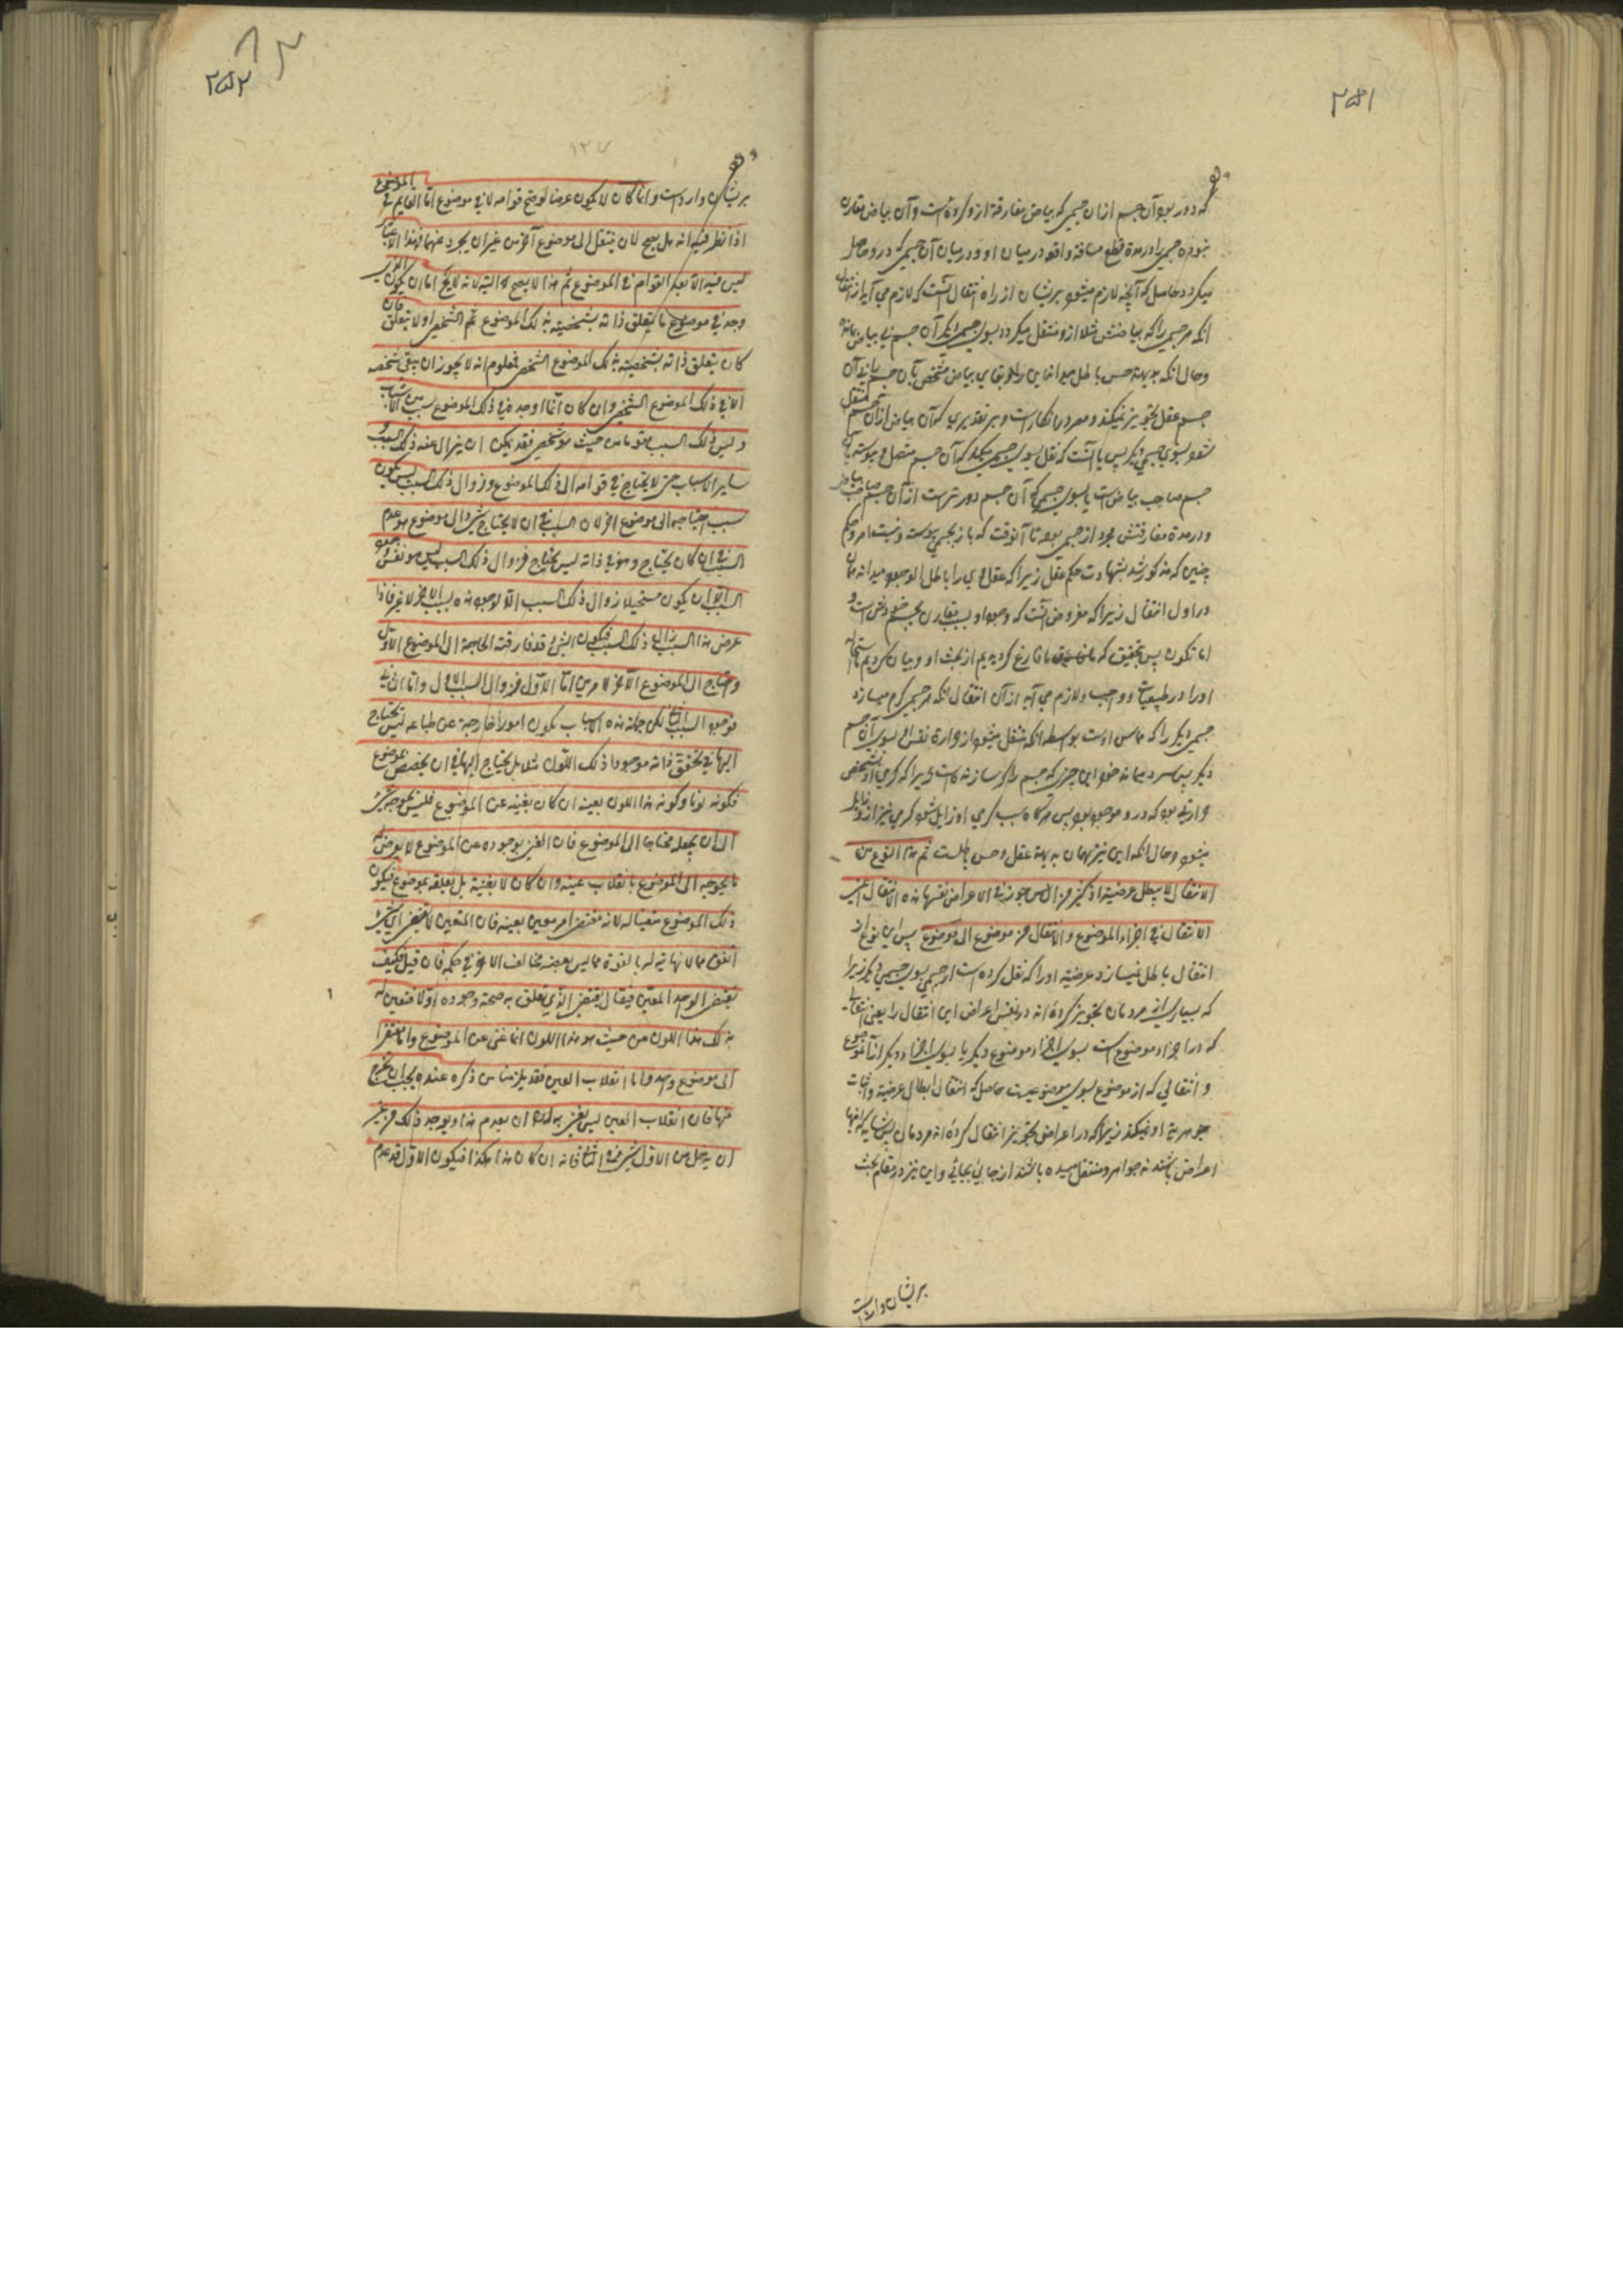 ۲۵۱
که دور بود آن جسم ازان جسمی که بیاض مفارقة ازو کرده است و آن بیاض مقارن
نبوده جسمی را در مدة قطع مسافة واقعه در میان او و در میان آن جسمی که درو حاصل
میکردد حاصل که آنچه لازم میشود بریشان از راه انتقال آنست که لازم می آید از انتقال
انکه هر جسمی را که بیاضش مثلا ازو منتقل میکردد بسوی جسم دیکر آن جسم بی بیاض بماند
وحال انکه بدیهة حس باطل میداند این را و بقای بیاض مشخص بآن جسم
جسم عقل تجویز نمیکند و معه در انکار است و بر تقدیری که آن بیاض ازان جسم منتقل
شود بسوی جسمی دیکر پس یا آنست که نقل بسوی جسمی میکند که آن جسم متصل و پیوسته بآن
جسم صاحب بیاض است یا بسوی جسمی که آن جسم دورتر است از آن جسم صاحب بیاض
و در مدة مفارقتش مجرد از جسمی بوده تا آنوقت که باز بجسمی پیوسته و نیست امر و حکم
چنین که مذکور شد بشهادت حکم عقل زیرا که عقل وی را باطل الوجود میداند
در اول انتقال زیرا که مفروض آنست که وجود او بسبب تقارن بجسم خودش است و
اما تکون پس تحقیق که ما فارغ کردیدیم از بحث او و بیان کردیم
او را در طبیعیات و واجب و لازم می آید از آن انتقال انکه هر جسمی کرم میسازد
جسمی دیکر را که مماس اوست بواسطه انکه منتقل میشود از و ارة نفس الی بسوی آن جسم
دیکر پس سرد میماند خود این چیزی که جسم را کرم سازنده است زیرا که کرمی او شخص
حرارتی بود که در و موجود بود پس هرکاه سبب کرمی او زایل شود کرمی نیز ازو زایل
میشود وحال انکه این نیز بهمان بدیهة عقل و حس باطلست ثم هذا النوع من
الانتقال لا یبطل عرضیته اذ کثیر من الناس جوز فی الاعراض نفسها هذه الانتقال اعنی
الانتقال فی اجزاء الموضوع و الانتقال من موضوع الی موضوع پس این نوع از
انتقال باطل نمیسازد عرضیته او را که نقل کرده است از جسمی بسوی جسمی دیکر زیرا
که بسیاری از مردمان تجویز کرده اند در نفس اعراض این انتقال را یعنی انتقال
که در اجزاء موضوع است بسوی اجزاء موضوع دیکر یا بسوی اجزاء دیکر از آن موضوع
و انتقالی که از موضوع بسوی موضوعیست حاصل که انتقال ابطال عرضیة و اثبات
جوهریة او نمیکند زیرا که در اعراض تجویز انتقال کرده اند مردمان پس شاید که اینها
اعراض باشند نه جواهر و منتقل میشده باشند از جایی بجائی و این نیز در مقام بحث
بریشان وارد است
۲۵۲
۱۲۷
بریشان وارد است و انما کان لا یکون عرضا لو صح قوامه لا فی موضوع اما القایم فی الموضوع
اذا نظر فیه انه هل یصح لان ینتقل الی موضوع آخر من غیر ان یجرد عنهما فهذا الاعتبار
لیس فیه الا بعد القوام فی الموضوع ثم هذا لا یصح البتة لانه لا یخ اما ان یکون الذی
وجد فی موضوع ما یتعلق ذاته بشخصیته بذلک الموضوع الشخصی او لا یتعلق فان
کان یتعلق ذاته بشخصیته بذلک الموضوع الشخصی فمعلوم انه لا یجوز ان یبقی شخصه
الا فی ذلک الموضوع الشخصی و ان کان انما اوجده فی ذلک الموضوع سبب من الاسباب
و لیس ذلک السبب مقوما من حیث هو شخصی فقد یمکن ان یزال عنه ذلک السبب و
سایر الاسباب حتی لا یحتاج فی قوامه الی ذلک الموضوع و زوال ذلک السبب لیس یکون
سبب احتیاجه الی موضوع آخر لان السبب فی ان لا یحتاج شئ الی موضوع هو عدم
السبب فی ان کان یحتاج و هو فی ذاته لیس یحتاج فزوال ذلک السبب لیس هو نفس وجود
السبب الا ان یکون مستحیلا زوال ذلک السبب الا لوجود هذه السبب الآخر لا غیر فاذا
عرض هذا السبب زال ذلک السبب فیکون الشئ قد فارقته الحاجة الی الموضوع الاول
و احتاج الی الموضوع الآخر لامرین اما الاول فزوال السبب الاول و اما الثانی
فوجود السبب الثانی لکن جملة هذه الاسباب یکون امورا خارجة عن طباعه لیس یحتاج
الیها فی تحقق ذاته موجودا ذلک اللون مثلا بل یحتاج الیها فی ان یخصص بموضوع
فکونه لونا و کونه هذا اللون بعینه ان کان یغنیه عن الموضوع فلیس یحوجه شئ
الی ان یجعله محتاجا الی الموضوع فان الغنی بوجوده عن الموضوع لا یعرض له
ما یحوجه الی الموضوع بانقلاب عینه و ان کان لا یغنیه بل یعلقه بموضوع فیکون
ذلک الموضوع متعینا له لانه مقتضی امر معین بعینه فان المتعین لا یقتضی ای شئ
اتفق مما لا نهایة له بالقوة مما لیس بعضه مخالف الآخر فی حکمه فان قیل فکیف
یقتضی الواحد المعین فیقال یقتضی الذی تعلق به صحة وجوده اولا فتعین له
بذلک هذا اللون من حیث هو هذا اللون اما غنی عن الموضوع و اما مفتقرا
الی موضوع واحد و اما انقلاب العین فقد یلزمنا من ذکره عنده یجب ان نخرج
منها فان انقلاب العین لیس یعنی به ان یعدم هذا و یوجد ذلک من غیر
ان یدخل من الاول شئ فی الثانی فانه ان کان هذا هکذا فیکون الاول قد عدم